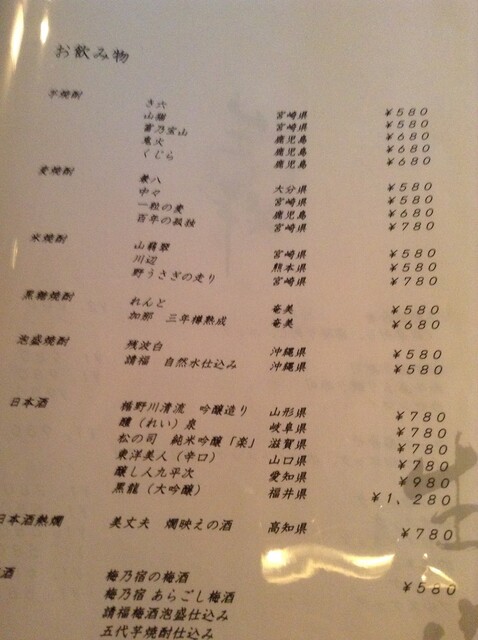 お飲み物
芋焼酎 き六 宮崎県 ¥580
山猫 宮崎県 ¥580
富乃宝山 鹿児島 ¥680
鬼火 鹿児島 ¥680
くじら 鹿児島 ¥680
麦焼酎 兼八 大分県 ¥580
中々 宮崎県 ¥580
一粒の麦 鹿児島 ¥680
百年の孤独 宮崎県 ¥780
米焼酎 山翡翠 宮崎県 ¥580
川辺 熊本県 ¥580
野うさぎの走り 宮崎県 ¥780
黒糖焼酎 れんと 奄美 ¥580
加那 三年樽熟成 奄美 ¥680
泡盛焼酎 残波白 沖縄県 ¥580
請福 自然水仕込み 沖縄県 ¥580
日本酒 楯野川清流 吟醸造り 山形県 ¥780
醴(れい)泉 岐阜県 ¥780
松の司 純米吟醸「楽」 滋賀県 ¥780
東洋美人(辛口) 山口県 ¥780
醸し人九平次 愛知県 ¥980
黒龍(大吟醸) 福井県 ¥1,280
日本酒熱燗 美丈夫 燗映えの酒 高知県 ¥780
酒 梅乃宿の梅酒 ¥580
梅乃宿 あらごし梅酒
請福梅酒泡盛仕込み
五代芋焼酎仕込み